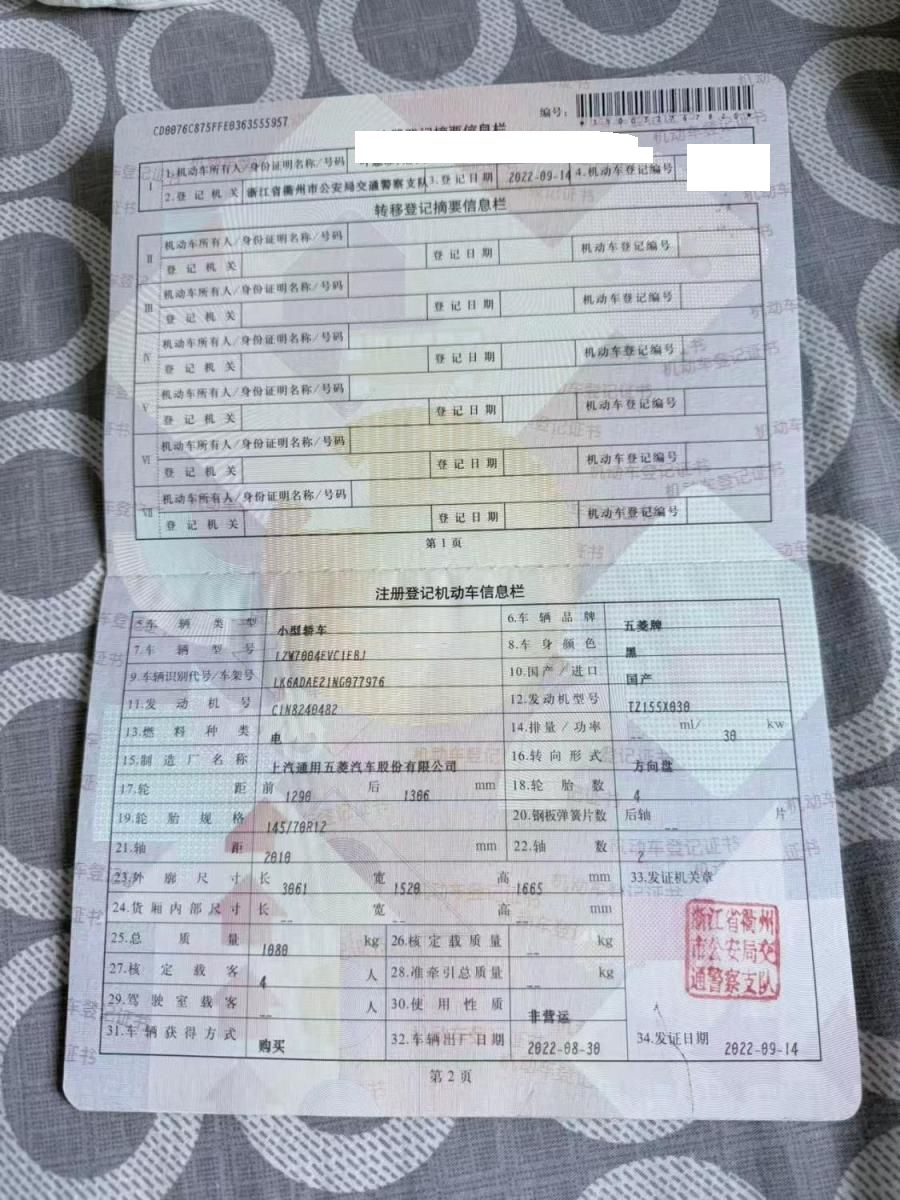 CD0076C875FFE0363555957
编号:
摘要信息栏
Ⅰ 1.机动车所有人/身份证明名称/号码
2.登记机关 浙江省衢州市公安局交通警察支队 3.登记日期 2022-09-14 4.机动车登记编号
转移登记摘要信息栏
Ⅱ 机动车所有人/身份证明名称/号码
登记机关 登记日期 机动车登记编号
Ⅲ 机动车所有人/身份证明名称/号码
登记机关 登记日期 机动车登记编号
Ⅳ 机动车所有人/身份证明名称/号码
登记机关 登记日期 机动车登记编号
Ⅴ 机动车所有人/身份证明名称/号码
登记机关 登记日期 机动车登记编号
Ⅵ 机动车所有人/身份证明名称/号码
登记机关 登记日期 机动车登记编号
Ⅶ 机动车所有人/身份证明名称/号码
登记机关 登记日期 机动车登记编号
第1页
注册登记机动车信息栏
5.车辆类型 小型轿车 6.车辆品牌 五菱牌
7.车辆型号 LZW7004EVC1EBJ 8.车身颜色 黑
9.车辆识别代号/车架号 LK6ADAE21NG077976 10.国产/进口 国产
11.发动机号 C1N8240482 12.发动机型号 TZ155X030
13.燃料种类 电 14.排量/功率 -- ml/ 30 kw
15.制造厂名称 上汽通用五菱汽车股份有限公司 16.转向形式 方向盘
17.轮距 前 1290 后 1306 mm 18.轮胎数 4
19.轮胎规格 145/70R12 20.钢板弹簧片数 后轴 -- 片
21.轴距 2010 mm 22.轴数 2
23.外廓尺寸 长 3061 宽 1520 高 1665 mm 33.发证机关章
24.货厢内部尺寸 长 -- 宽 -- 高 -- mm
25.总质量 1080 kg 26.核定载质量 -- kg
27.核定载客 4 人 28.准牵引总质量 -- kg
29.驾驶室载客 -- 人 30.使用性质 非营运
31.车辆获得方式 购买 32.车辆出厂日期 2022-08-30 34.发证日期 2022-09-14
浙江省衢州
市公安局交
通警察支队
第2页